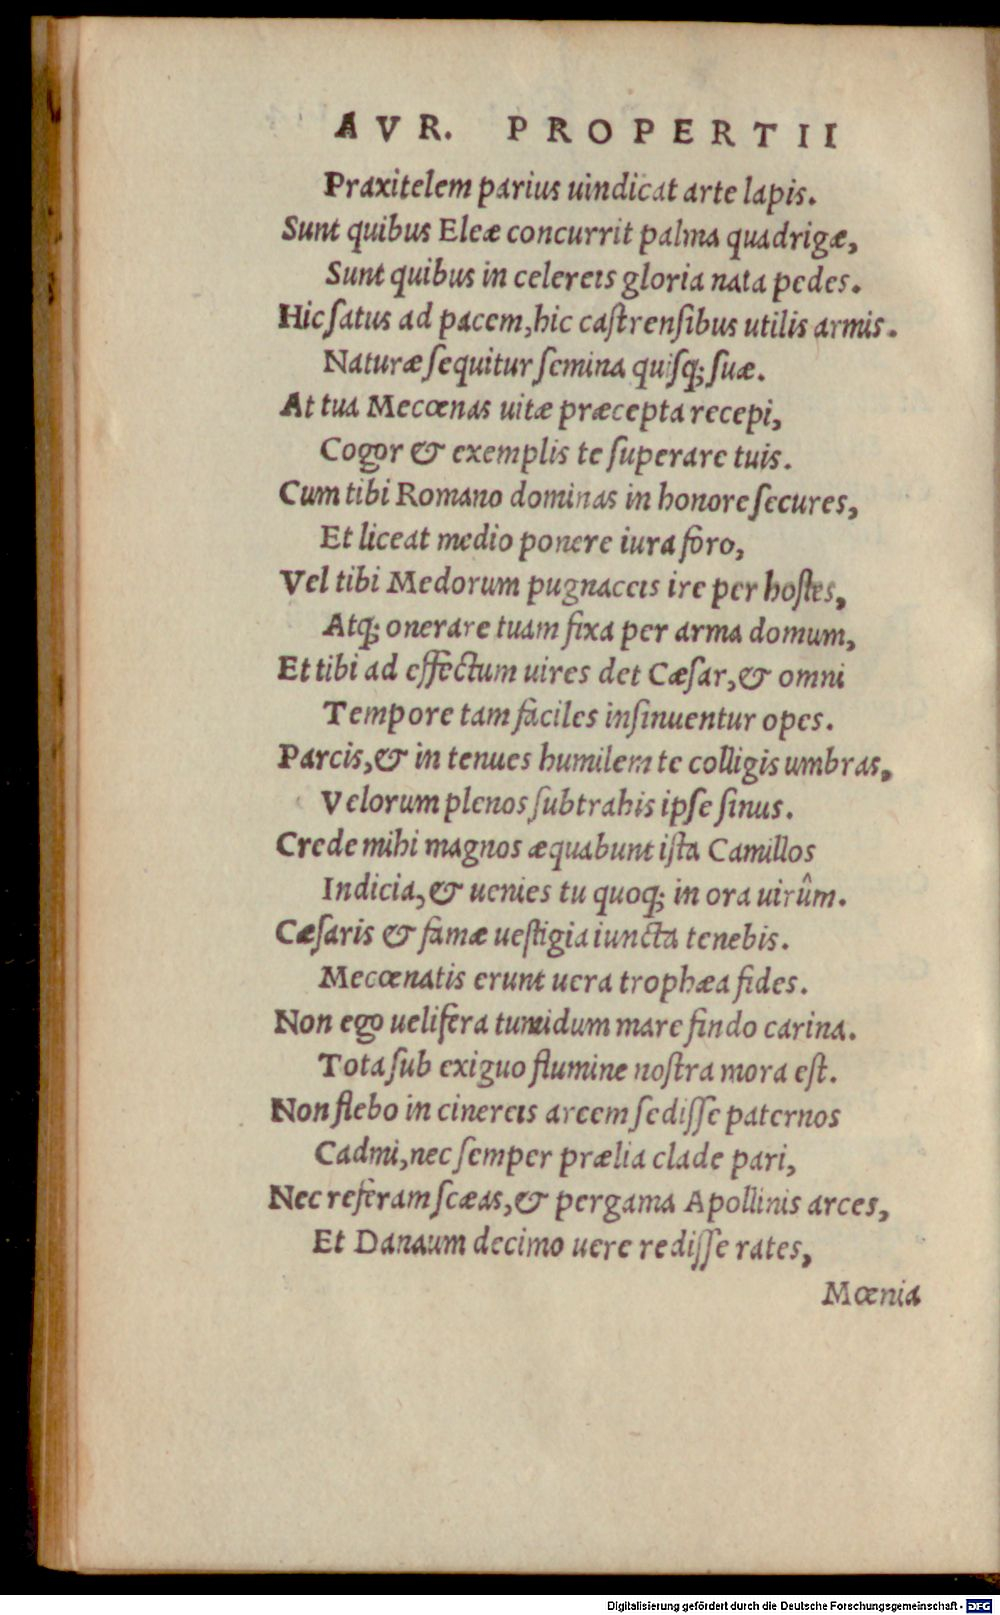 AVR. PROPERTII
Praxitelem parius uindicat arte lapis.
Sunt quibus Eleæ concurrit palma quadrigæ,
Sunt quibus in celereis gloria nata pedes.
Hic ſatus ad pacem, hic caſtrenſibus utilis armis.
Naturæ ſequitur ſemina quiſq; ſuæ.
At tua Mecœnas uitæ præcepta recepi,
Cogor & exemplis te ſuperare tuis.
Cum tibi Romano dominas in honore ſecures,
Et liceat medio ponere iura foro,
Vel tibi Medorum pugnaceis ire per hoſtes,
Atq; onerare tuam fixa per arma domum,
Et tibi ad effectum uires det Cæſar, & omni
Tempore tam faciles inſinuentur opes.
Parcis, & in tenues humilem te colligis umbras,
Velorum plenos ſubtrahis ipſe ſinus.
Crede mihi magnos æquabunt iſta Camillos
Indicia, & uenies tu quoq; in ora uirûm.
Cæſaris & famæ ueſtigia iuncta tenebis.
Mecœnatis erunt uera trophæa fides.
Non ego uelifera tumidum mare findo carina.
Tota ſub exiguo flumine noſtra mora eſt.
Non flebo in cinereis arcem ſediſſe paternos
Cadmi, nec ſemper prælia clade pari,
Nec referam ſcæas, & pergama Apollinis arces,
Et Danaum decimo uere rediſſe rates,
Mœnia
Digitalisierung gefördert durch die Deutsche Forschungsgemeinschaft - DFG